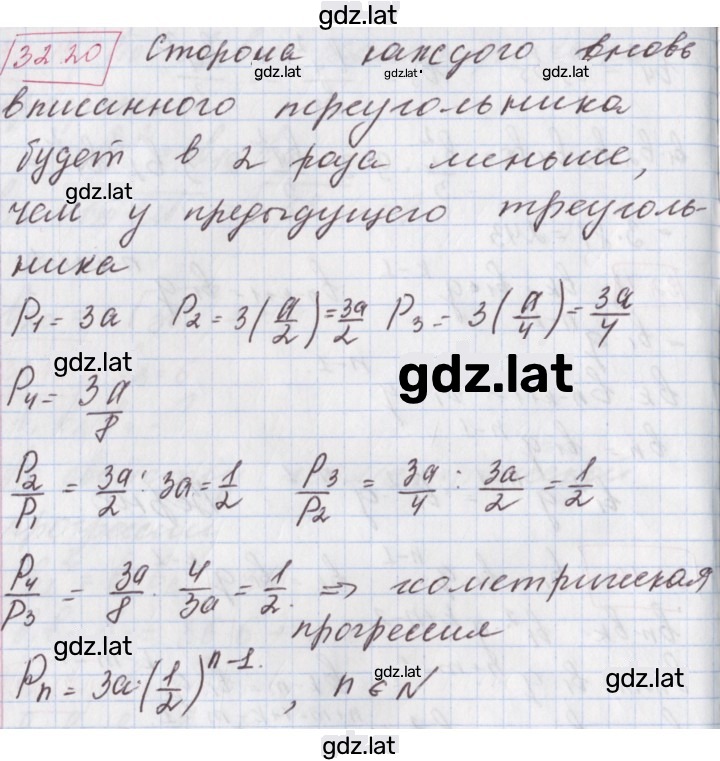 gdz.lat
32.20 Сторона каждого вновь
gdz.lat gdz.lat gdz.lat
вписанного треугольника
будет в 2 раза меньше,
gdz.lat
чем у предыдущего треуголь-
ника
P₁ = 3a P₂ = 3(a/2) = 3a/2 P₃ = 3(a/4) = 3a/4
gdz.lat gdz.lat
P₄ = 3a/8
P₂/P₁ = 3a/2 : 3a = 1/2 P₃/P₂ = 3a/4 : 3a/2 = 1/2
P₄/P₃ = 3a/8 · 4/3a = 1/2. => геометрическая
прогрессия
gdz.lat
Pₙ = 3a·(1/2)ⁿ⁻¹, n ∈ N
gdz.lat gdz.lat
gdz.lat